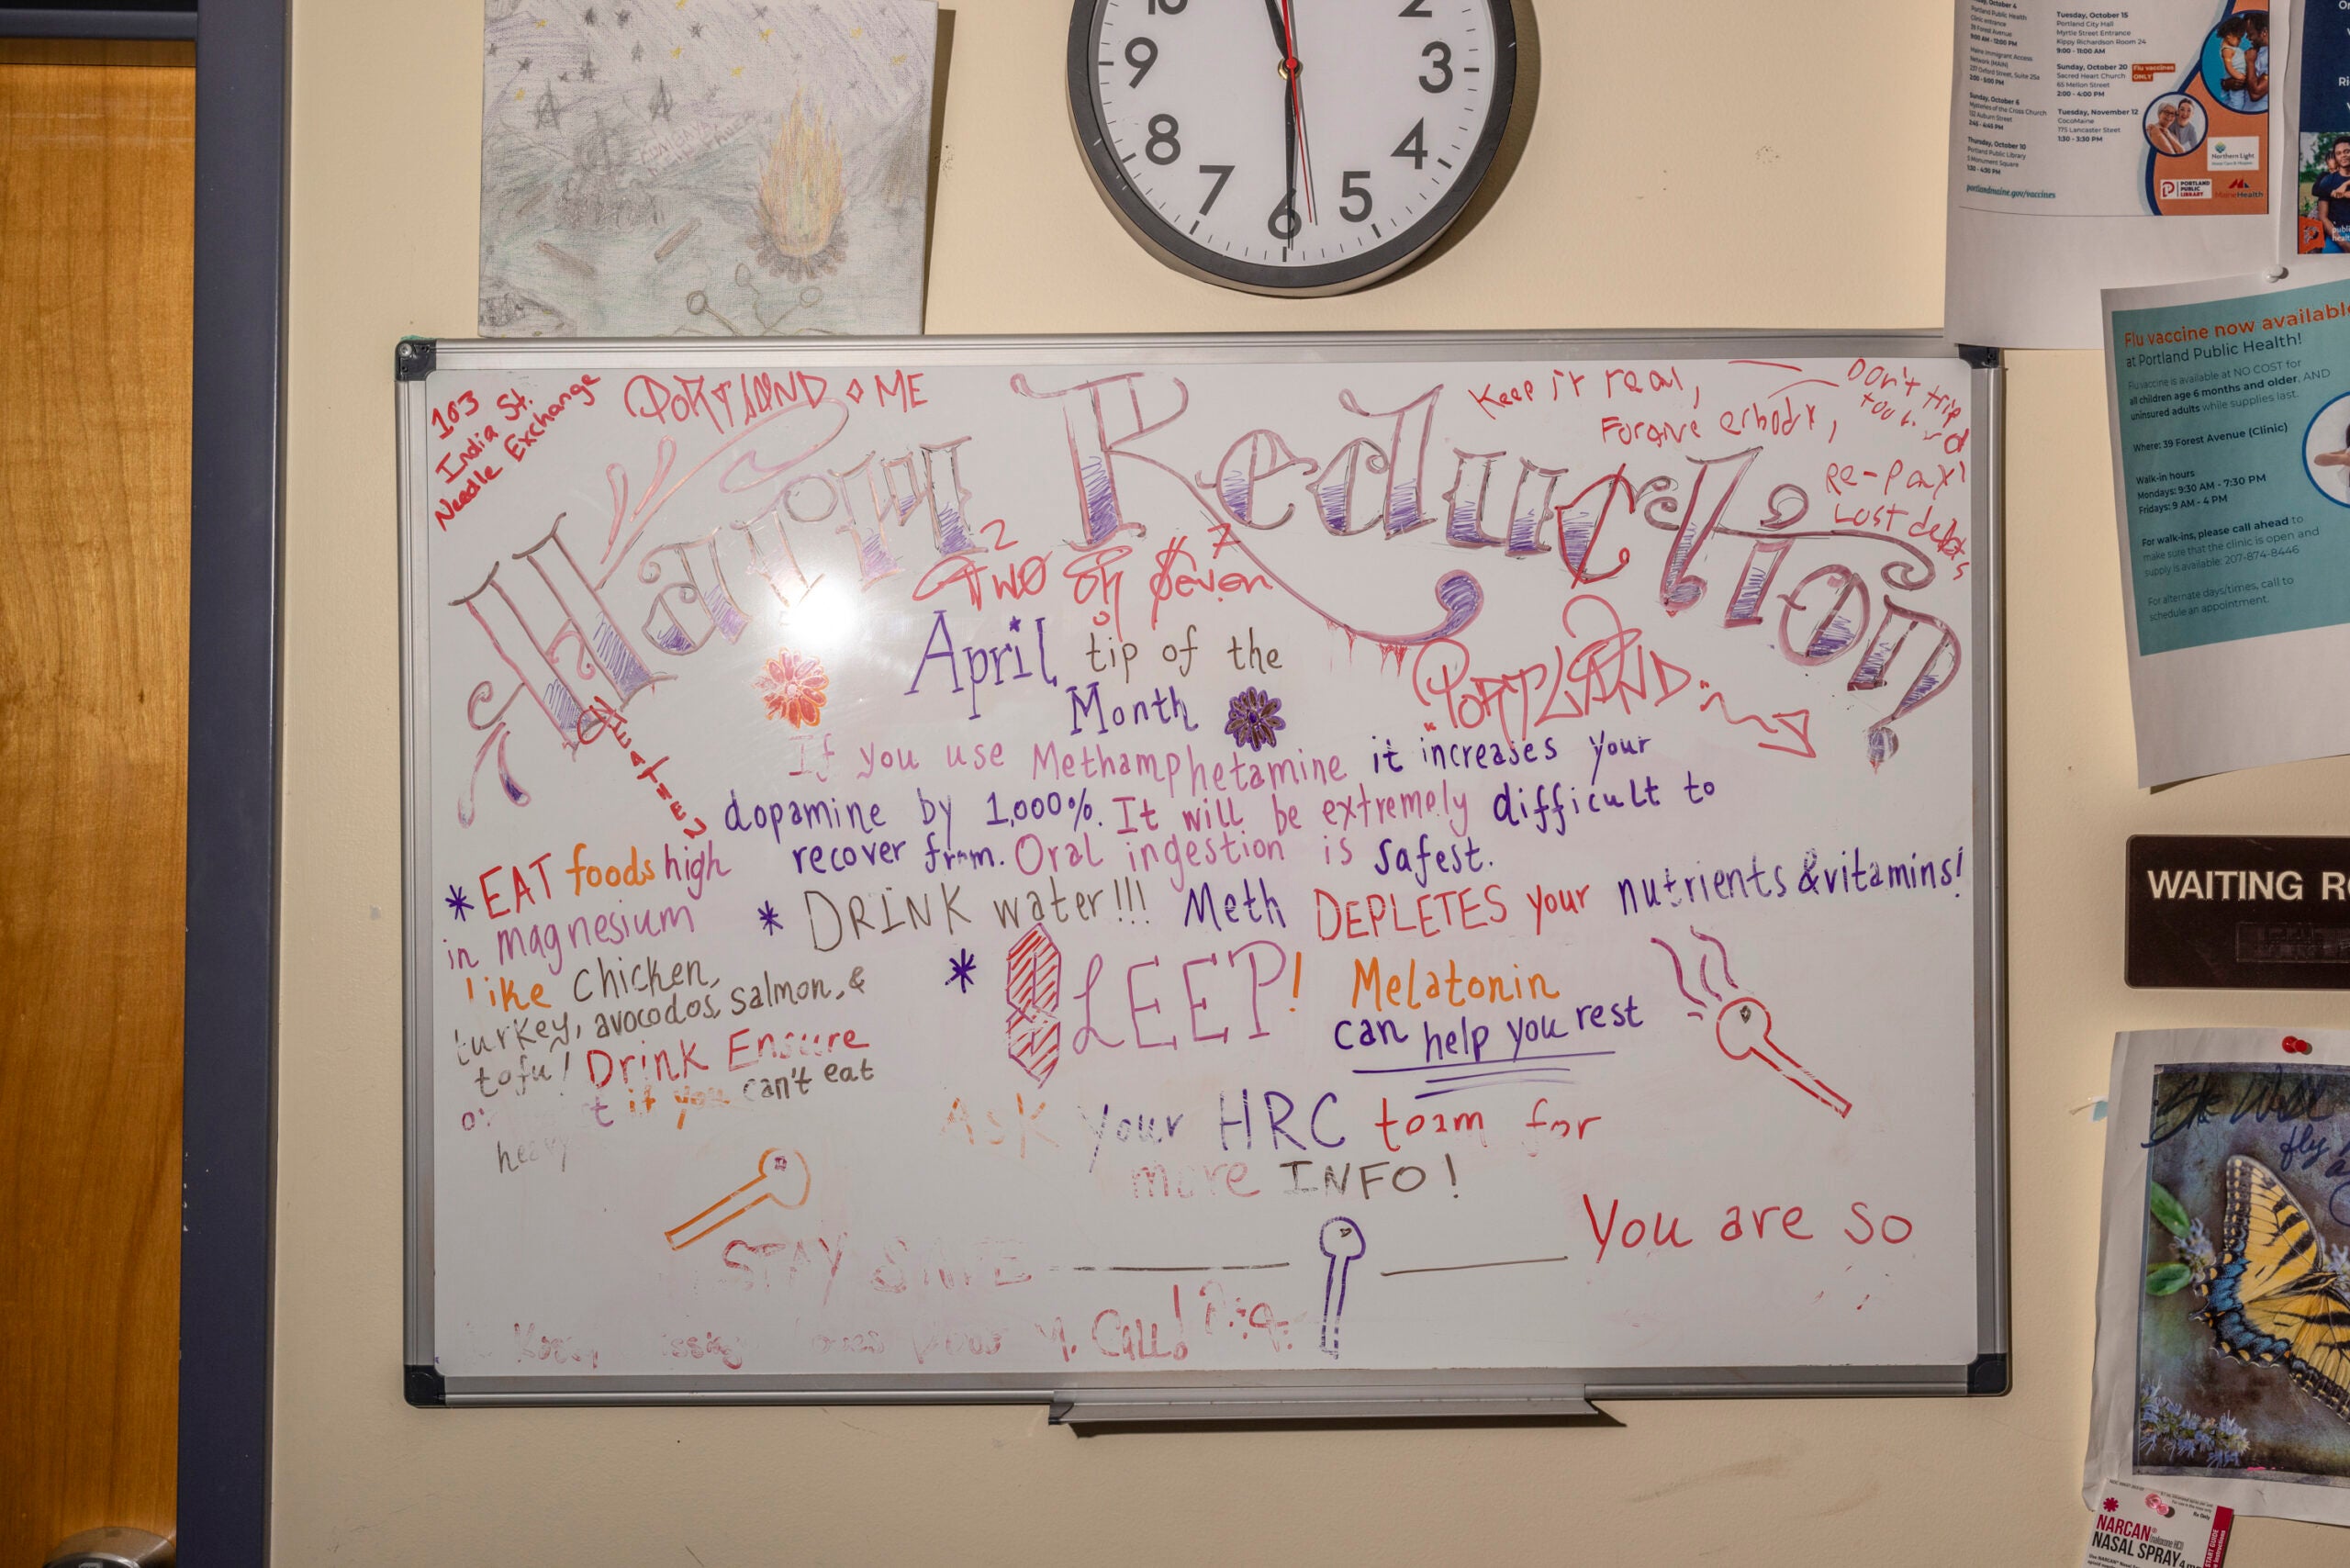 10
2
9
3
8
4
7
6
5
October 4
Portland Public Health
Clinic entrance
39 Forest Avenue
9:00 AM - 12:00 PM
Maine Immigrant Access
Network (MAIN)
237 Oxford Street, Suite 25a
Sunday, October 6
Mysteries of the Cross Church
Thursday, October 10
Portland Public Library
5 Monument Square
1:30 - 4:30 PM
portlandmaine.gov/vaccines
Tuesday, October 15
Portland City Hall
Myrtle Street Entrance
Kippy Richardson Room 24
9:00 - 11:00 AM
Sunday, October 20
Flu vaccines
ONLY
Sacred Heart Church
65 Mellon Street
2:00 - 4:00 PM
Tuesday, November 12
CocoMaine
175 Lancaster Steet
1:30 - 3:30 PM
Northern Light
PORTLAND
PUBLIC
LIBRARY
MaineHealth
Flu vaccine now available
at Portland Public Health!
Flu vaccine is available at NO COST for
all children age 6 months and older, AND
uninsured adults while supplies last.
Where: 39 Forest Avenue (Clinic)
Walk-in hours
Mondays: 9:30 AM - 7:30 PM
Fridays: 9 AM - 4 PM
For walk-ins, please call ahead to
make sure that the clinic is open and
supply is available: 207-874-8446
For alternate days/times, call to
schedule an appointment.
103
India St.
Needle Exchange
PORTLAND ME
Keep it real,
Forgive erbody,
Don't trip
too
Re-pay
Lost debts
Harm Reduction
2 7
Two Seven
April tip of the
Month
PORTLAND
If you use Methamphetamine it increases your
dopamine by 1,000%. It will be extremely difficult to
recover from. Oral ingestion is safest.
* EAT foods high
in magnesium
like chicken,
turkey, avocodos, salmon, &
tofu! Drink Ensure
if you can't eat
heavy
* DRINK water!!! Meth DEPLETES your nutrients & vitamins!
* SLEEP! Melatonin
can help you rest
Ask your HRC team for
more INFO!
STAY SAFE
You are so
Call!
WAITING
She Will
fly
NARCAN
NASAL SPRAY